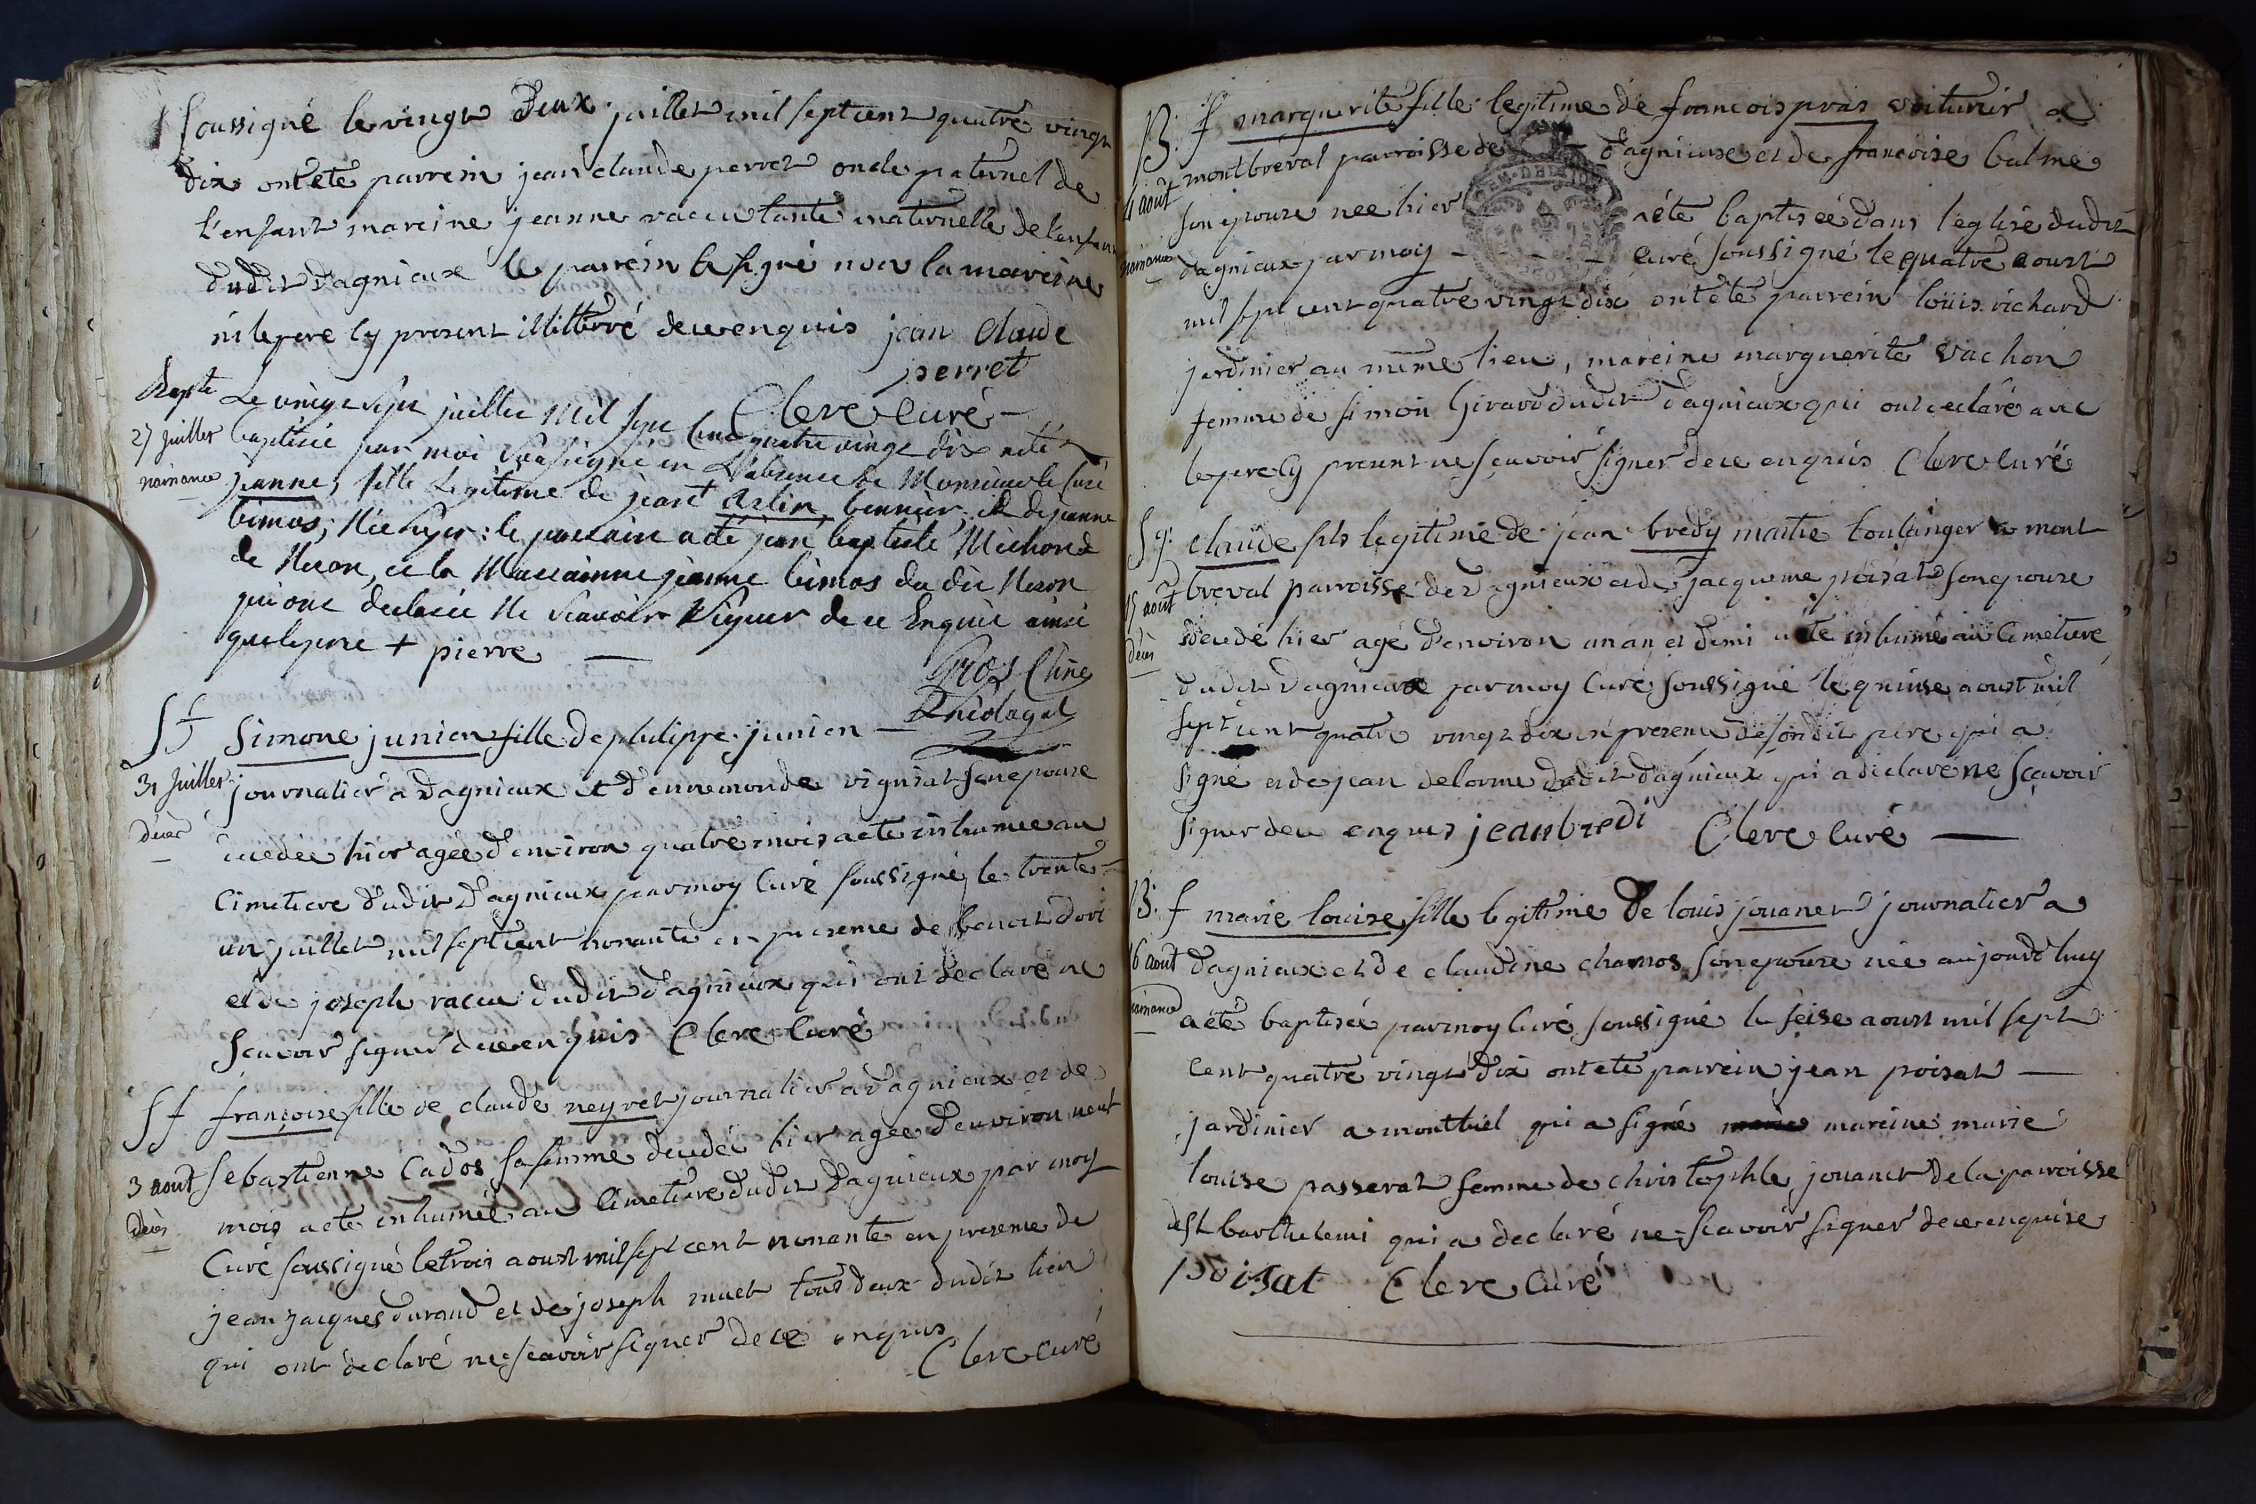 soussigné le vingt deux juillet mil sept cent quatre vingt
dix ont ete parrein jean claude perret oncle paternel de
l'enfant mareine jeanne raceu tante maternelle de l'enfant
dudit dagnieux le parrein a signé non la mareine
ni le pere cy present illitterré de ce enquis jean Claude
perret
Clerc curé
Bapte
27 juillet
naisnance
Le vingt sept juillet mil sept cent quatre vingt dix a été
baptisée par moi soussigné en l'absence de Monsieur le Curé
jeanne, fille legitime de jean Arlin, et de jeanne
bimos, née hyer: le parrain a été jean baptiste Michon
de Niron, et la Marrainne jeanne bimos du dit Niron
qui ont declaré ne scavoir signer de ce Enquis ainsi
que le pere + pierre
Gros
Sf
31 juillet
décès
Simone junien fille de philippe junien
journalier a dagnieux et d'ennemonde vignat son epouse
decedée hier agée d'environ quatre mois a ete inhumée au
cimetiere dudit dagnieux par moy curé soussigné le trente
un juillet mil sept cent nonante en presence de benoit dori
et de joseph raceu dudit dagnieux qui ont declaré ne
scavoir signer de ce enquis Clerc curé
Sf
3 aout
décès
françoise fille de claude neyret journalier a dagnieux et de
sebastienne Cados sa femme decedée hier agée d'environ neuf
mois a ete inhumée au cimetiere dudit dagnieux par moy
Curé soussigné le trois aoust mil sept cent nonante en presence de
jean jacques durand et de joseph muet tous deux dudit lieu
qui ont declaré ne scavoir signer de ce enquis
Clerc curé
B. f
4 août
naisnance
marguerite fille legitime de francois prais voiturier a
montbreval parroisse de dagnieux et de francoise balme
son epouse née hier a été baptisée dans l'eglise dudit
dagnieux par moy curé soussigné le quatre aoust
mil sept cent quatre vingt dix ont ete parrein louis richard
jardinier au même lieu, mareine marguerite vachon
femme de simon Girard dudit dagnieux qui ont declaré avec
le pere cy present ne sçavoir signer de ce enquis Clerc curé
S g.
15 août
décès
claude fils legitime de jean bredy maitre boulanger a mont
breval parroisse de dagnieux et de jacqueme poisat son epouse
decedé hier agé d'environ un an et demi a ete inhumé au cimetiere
dudit dagnieux par moy Curé soussigné le quinse aoust mil
sept cent quatre vingt dix en presence de son dit pere qui a
signé et de jean delorme dudit dagnieux qui a declaré ne sçavoir
signer de ce enquis jean bredi Clerc curé
B. f
16 aout
naisnance
marie louise fille legitime de louis jouanet journalier a
dagnieux et de claudine chamos son epouse née aujourd'huy
a été baptisée par moy Curé soussigné le seise aoust mil sept
cent quatre vingt dix ont ete parrein jean poisat
jardinier a montluel qui a signé mareine marie
louise passerat femme de christophle jouanet de la parroisse
de st barthelemi qui a declaré ne scavoir signer de ce enquise
poisat Clerc Curé